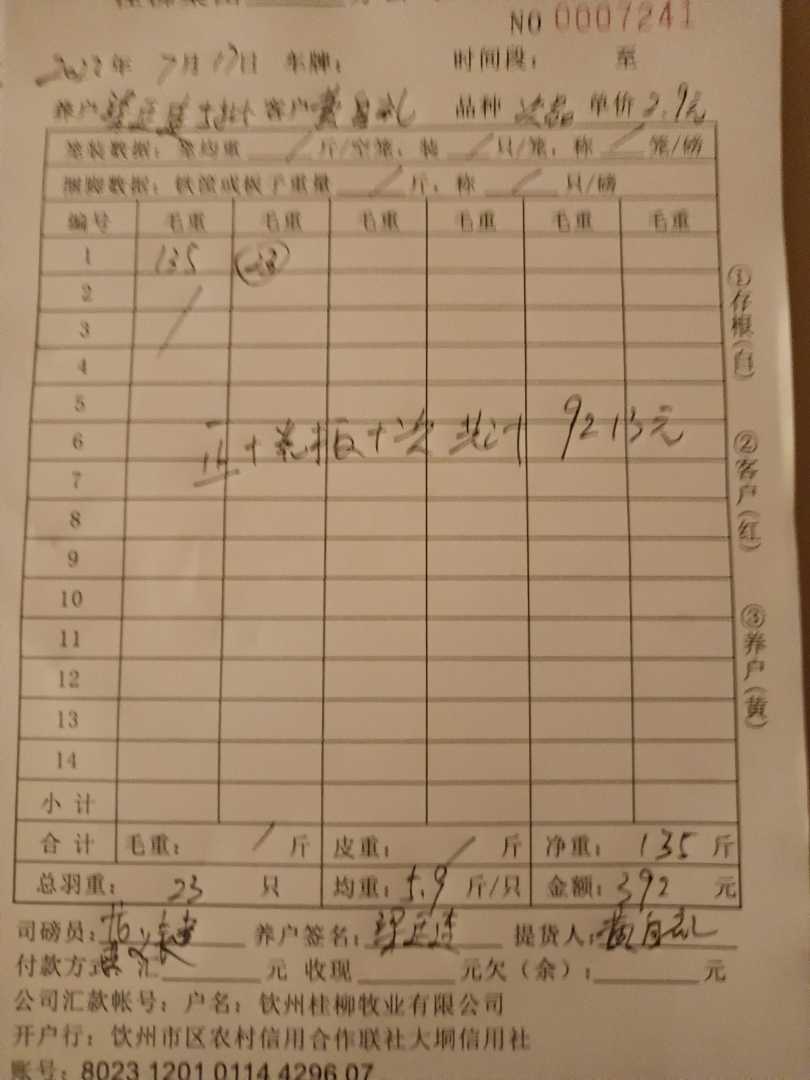 NO 0007241
年 7月17日 车牌： 时间段： 至
养户 客户 品种 次品 单价 2.9元
笼装数据：笼均重 斤/空笼，装 只/笼，称 笼/磅
捆脚数据：铁筐或板子重量 斤，称 只/磅
编号 毛重 毛重 毛重 毛重 毛重 毛重
1 135 (23)
2
3
4
5
6
7
正+光板+次 共计 9213元
8
9
10
11
12
13
14
小计
合计 毛重： 斤 皮重： 斤 净重：135 斤
总羽重： 23 只 均重：5.9 斤/只 金额：392 元
司磅员： 养户签名： 提货人：
付款方式 汇 元 收现 元欠（余）： 元
公司汇款帐号：户名：钦州桂柳牧业有限公司
开户行：钦州市区农村信用合作联社大垌信用社
账号：8023 1201 0114 4296 07
①存根(白)
②客户(红)
③养户(黄)